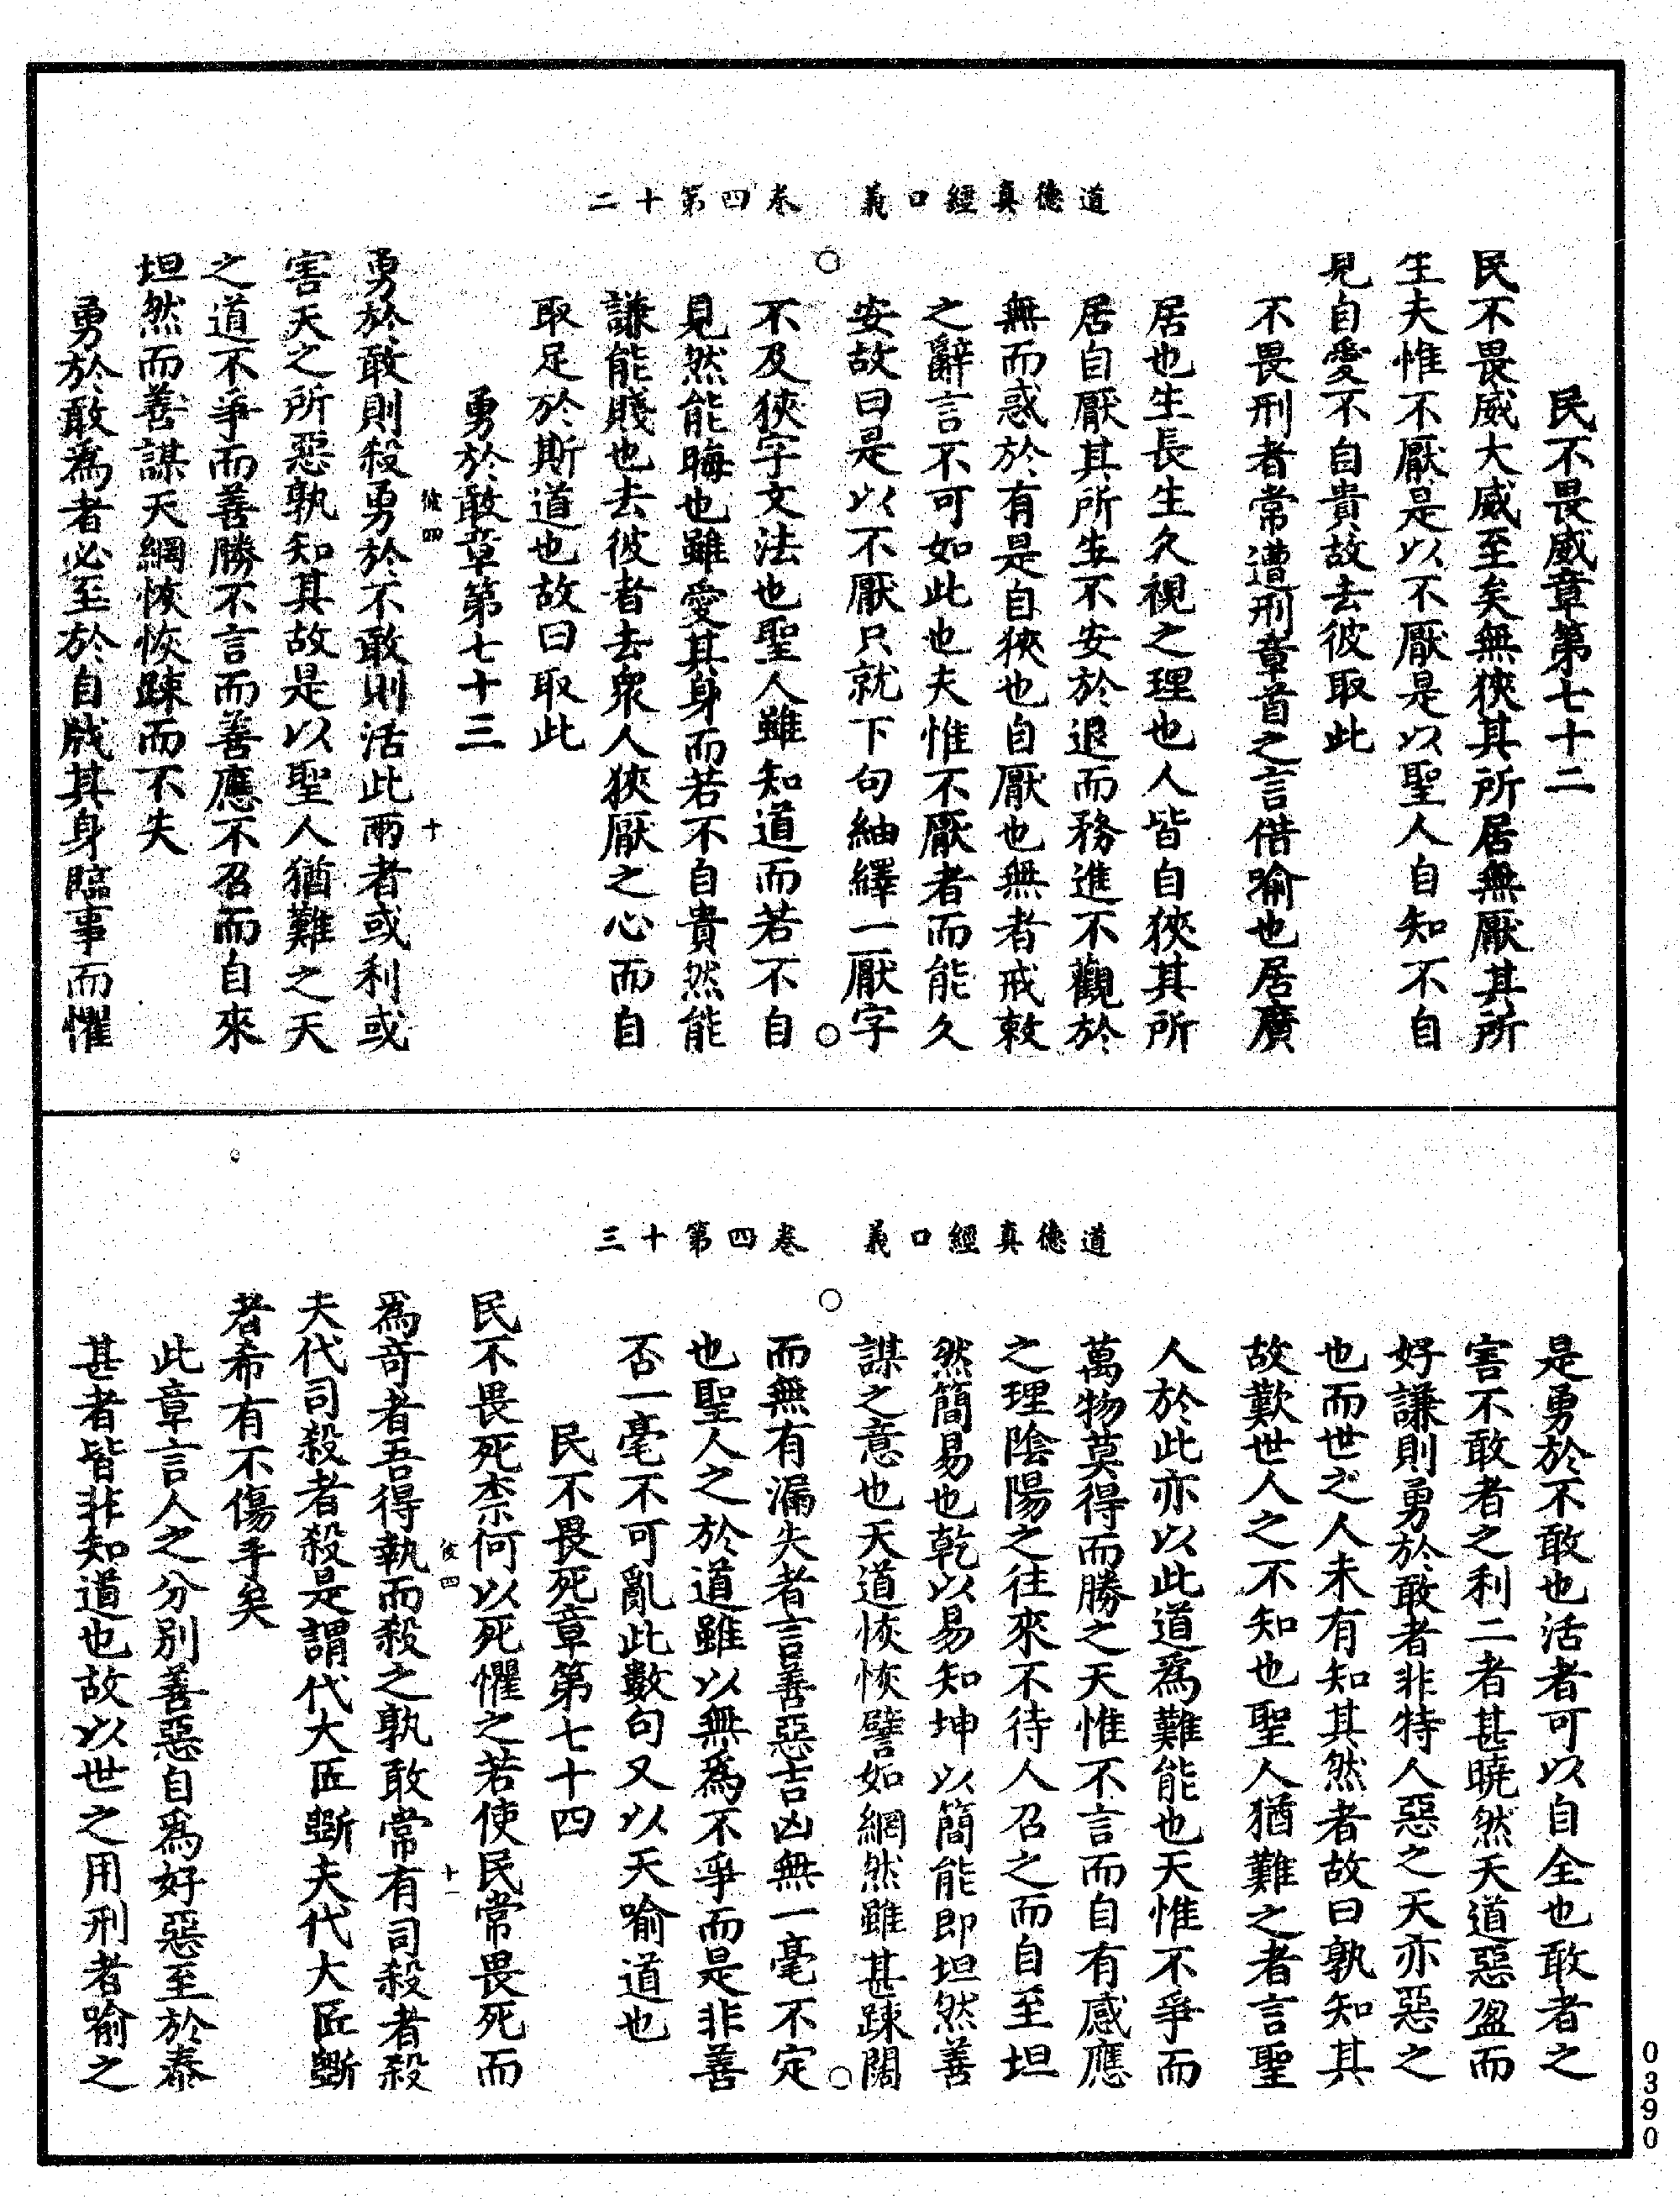 道德真經口義　卷四第十二
民不畏威章第七十二
民不畏威大威至矣無狹其所居無厭其所
生夫惟不厭是以不厭是以聖人自知不自
見自愛不自貴故去彼取此
不畏刑者常遭刑章首之言借喻也居廣
居也生長生久視之理也人皆自狹其所
居自厭其所生不安於退而務進不觀於
無而惑於有是自狹也自厭也無者戒敕
之辭言不可如此也夫惟不厭者而能久
安故曰是以不厭只就下句紬繹一厭字
不及狹字文法也聖人雖知道而若不自
見然能晦也雖愛其身而若不自貴然能
謙能賤也去彼者去眾人狹厭之心而自
取足於斯道也故曰取此
勇於敢章第七十三
彼四　十
勇於敢則殺勇於不敢則活此兩者或利或
害天之所惡孰知其故是以聖人猶難之天
之道不爭而善勝不言而善應不召而自來
坦然而善謀天網恢恢踈而不失
勇於敢為者必至於自戕其身臨事而懼
道德真經口義　卷四第十三
是勇於不敢也活者可以自全也敢者之
害不敢者之利二者甚曉然天道惡盈而
好謙則勇於敢者非特人惡之天亦惡之
也而世之人未有知其然者故曰孰知其
故歎世人之不知也聖人猶難之者言聖
人於此亦以此道為難能也天惟不爭而
萬物莫得而勝之天惟不言而自有感應
之理陰陽之往來不待人召之而自至坦
然簡易也乾以易知坤以簡能即坦然善
謀之意也天道恢恢譬如網然雖甚踈闊
而無有漏失者言善惡吉凶無一毫不定
也聖人之於道雖以無為不爭而是非善
否一毫不可亂此數句又以天喻道也
民不畏死章第七十四
民不畏死柰何以死懼之若使民常畏死而
彼四　十一
為奇者吾得執而殺之孰敢常有司殺者殺
夫代司殺者殺是謂代大匠斲夫代大匠斲
者希有不傷手矣
此章言人之分別善惡自為好惡至於泰
甚者皆非知道也故以世之用刑者喻之
0390